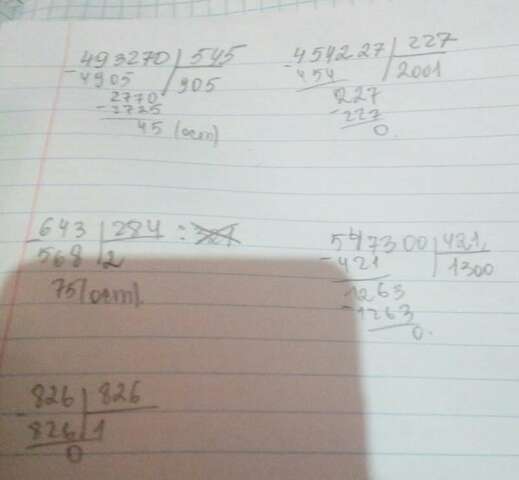 493270 | 545
- 4905 | 905
2770
- 2725
45 (ост)
- 454227 | 227
454 | 2001
227
- 227
0.
- 643 | 284 :
568 | 2
75 (ост).
547300 | 421
- 421 | 1300
1263
- 1263
0.
- 826 | 826
826 | 1
0